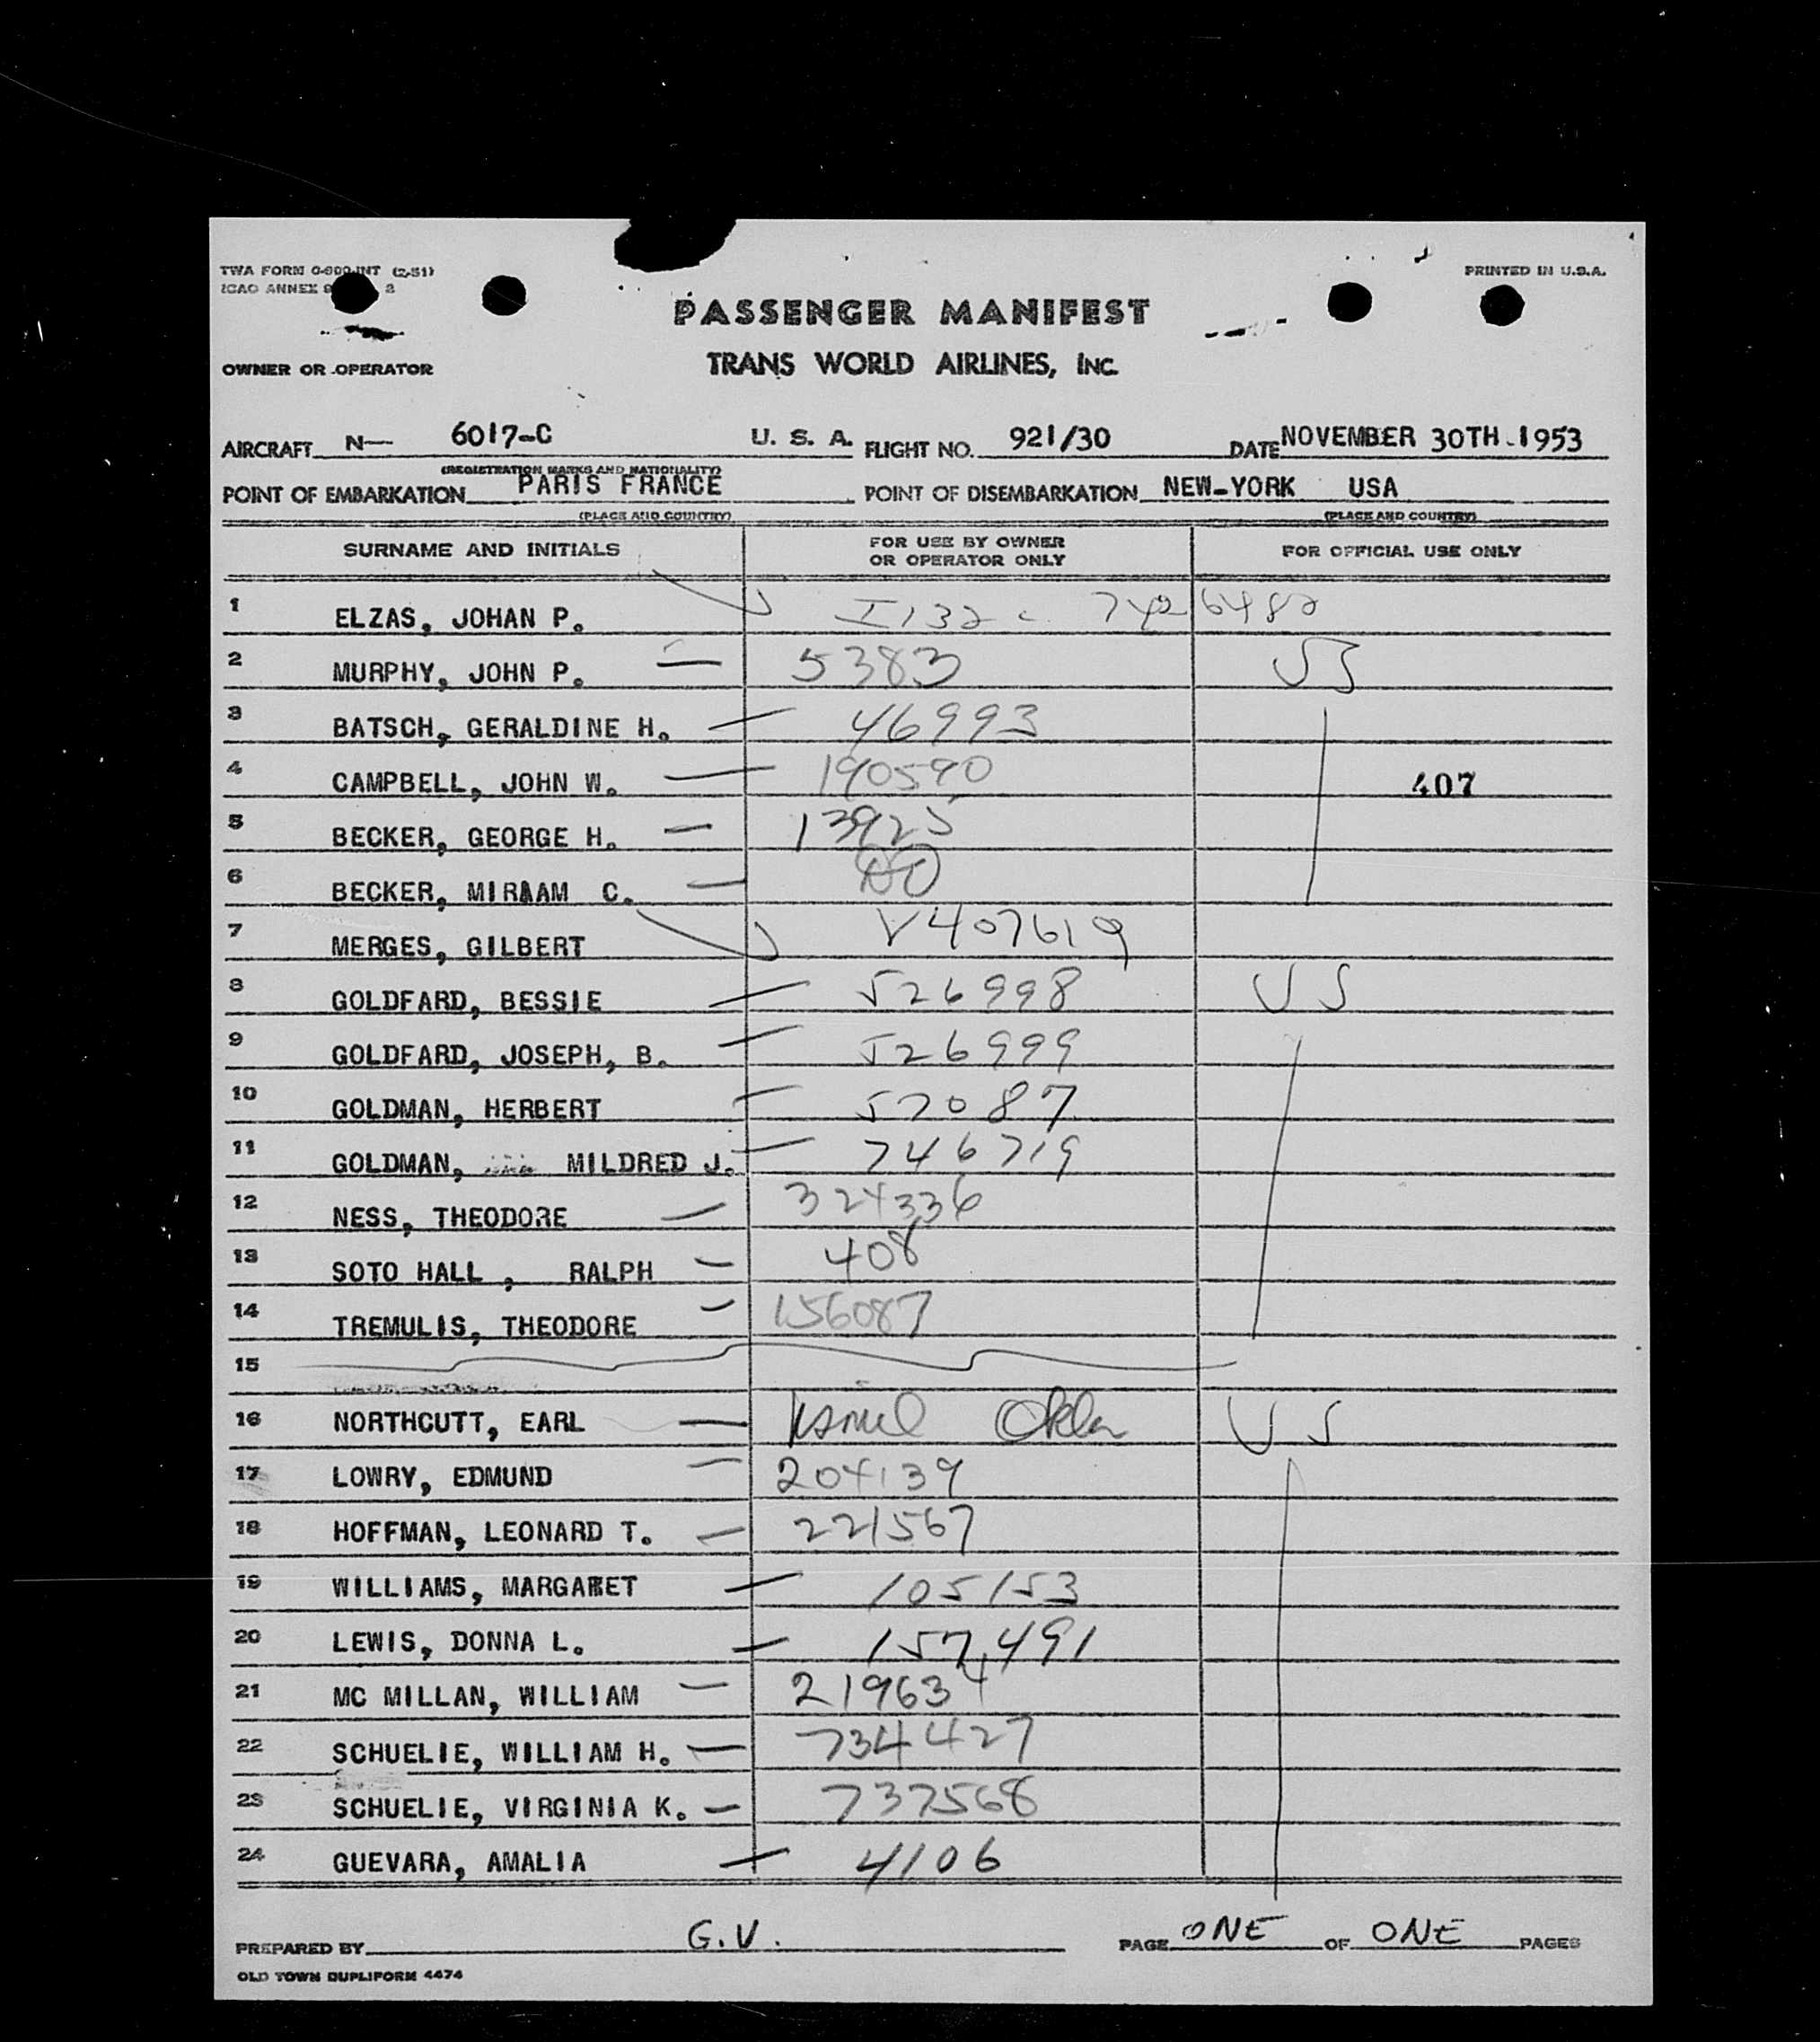 TWA FORM 0-900-INT (2-51)
ICAO ANNEX 9 2
PRINTED IN U.S.A.
PASSENGER MANIFEST
OWNER OR OPERATOR
TRANS WORLD AIRLINES, INC.
AIRCRAFT N— 6017-C U. S. A. FLIGHT NO. 921/30 DATE NOVEMBER 30TH.1953
(REGISTRATION MARKS AND NATIONALITY)
POINT OF EMBARKATION PARIS FRANCE POINT OF DISEMBARKATION NEW-YORK USA
(PLACE AND COUNTRY) (PLACE AND COUNTRY)
SURNAME AND INITIALS FOR USE BY OWNER OR OPERATOR ONLY FOR OFFICIAL USE ONLY
1 ELZAS, JOHAN P. I132
2 MURPHY, JOHN P. — 5383 US
3 BATSCH, GERALDINE H. — 46993
4 CAMPBELL, JOHN W. — 190590 407
5 BECKER, GEORGE H. — 13925
6 BECKER, MIRIAM C. —
7 MERGES, GILBERT V407619
8 GOLDFARD, BESSIE — 526998 US
9 GOLDFARD, JOSEPH, B. — 526999
10 GOLDMAN, HERBERT — 57087
11 GOLDMAN, MILDRED J. — 746719
12 NESS, THEODORE — 324336
13 SOTO HALL , RALPH — 408
14 TREMULIS, THEODORE — 156087
15
16 NORTHCUTT, EARL — Okla US
17 LOWRY, EDMUND — 204139
18 HOFFMAN, LEONARD T. — 221567
19 WILLIAMS, MARGARET — 105153
20 LEWIS, DONNA L. — 157491
21 MC MILLAN, WILLIAM — 219634
22 SCHUELIE, WILLIAM H. — 734427
23 SCHUELIE, VIRGINIA K. — 737568
24 GUEVARA, AMALIA — 4106
PREPARED BY G.V. PAGE ONE OF ONE PAGES
OLD TOWN DUPLIFORM 4474